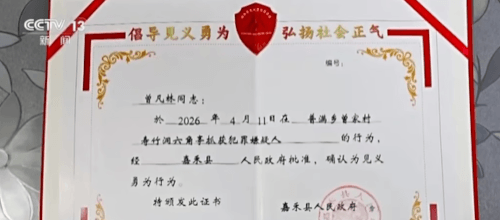 CCTV 13
新闻
倡导见义勇为 弘扬社会正气
编号:
曾凡林同志:
於 2026 年 4 月 11 日在 普满乡曾家村
寿竹湘六角亭抓获犯罪嫌疑人 的行为,
经 嘉禾县 人民政府批准,确认为见义
勇为行为。
特颁发此证书 嘉禾县人民政府